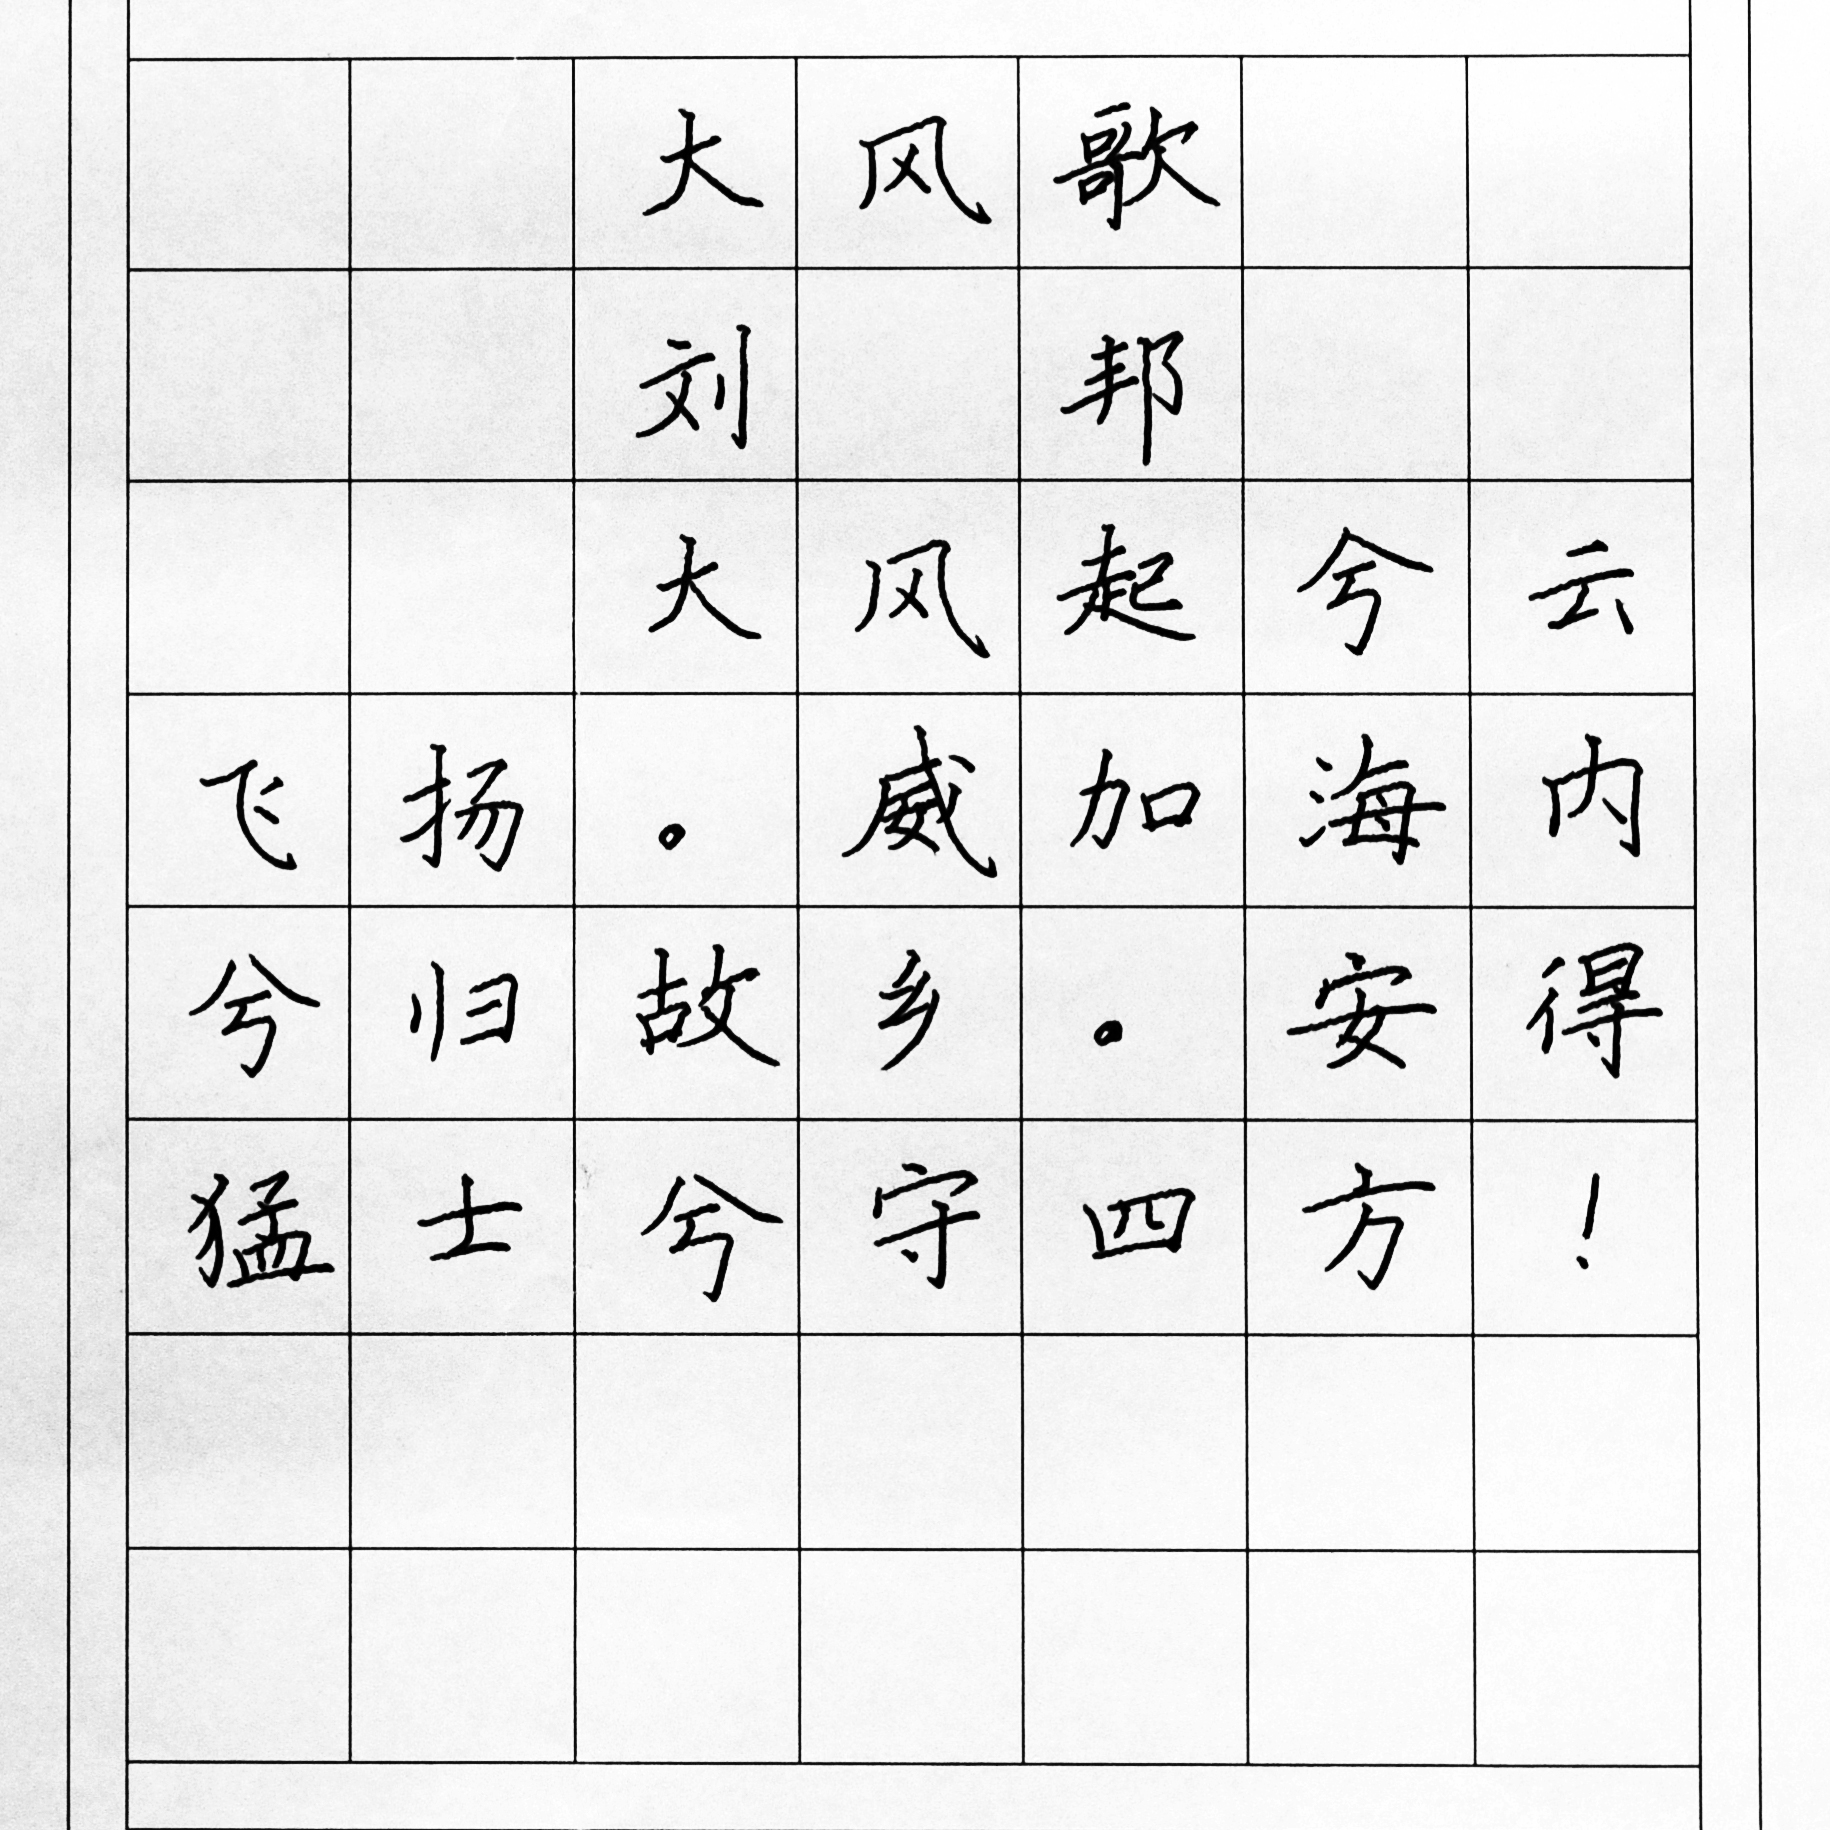 大风歌
刘邦
大风起兮云
飞扬。威加海内
兮归故乡。安得
猛士兮守四方！